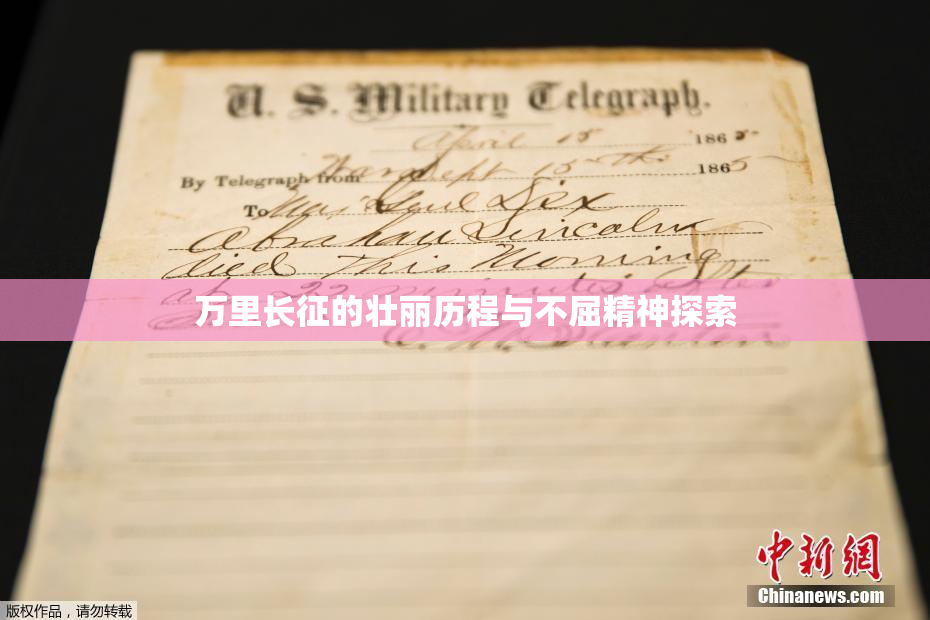 U. S. Military Telegraph.
April 15 1865
By Telegraph from War Dept 15th 1865
To Maj Genl Dix
Abraham Lincoln
died This Morning
at 22 minutes after
万里长征的壮丽历程与不屈精神探索
中新网
Chinanews.com
版权作品，请勿转载